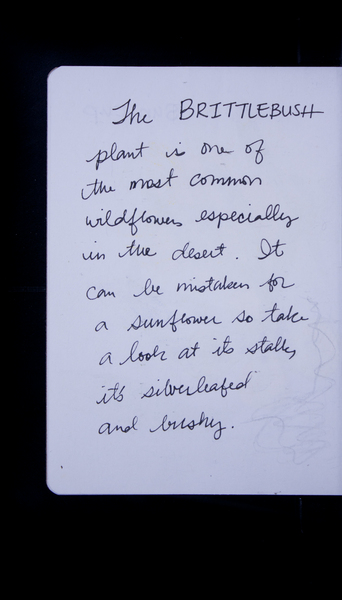 The BRITTLEBUSH
plant is one of
the most common
wildflowers especially
in the desert. It
can be mistaken for
a sunflower so take
a look at its stalk,
it's silverleafed
and bushy.